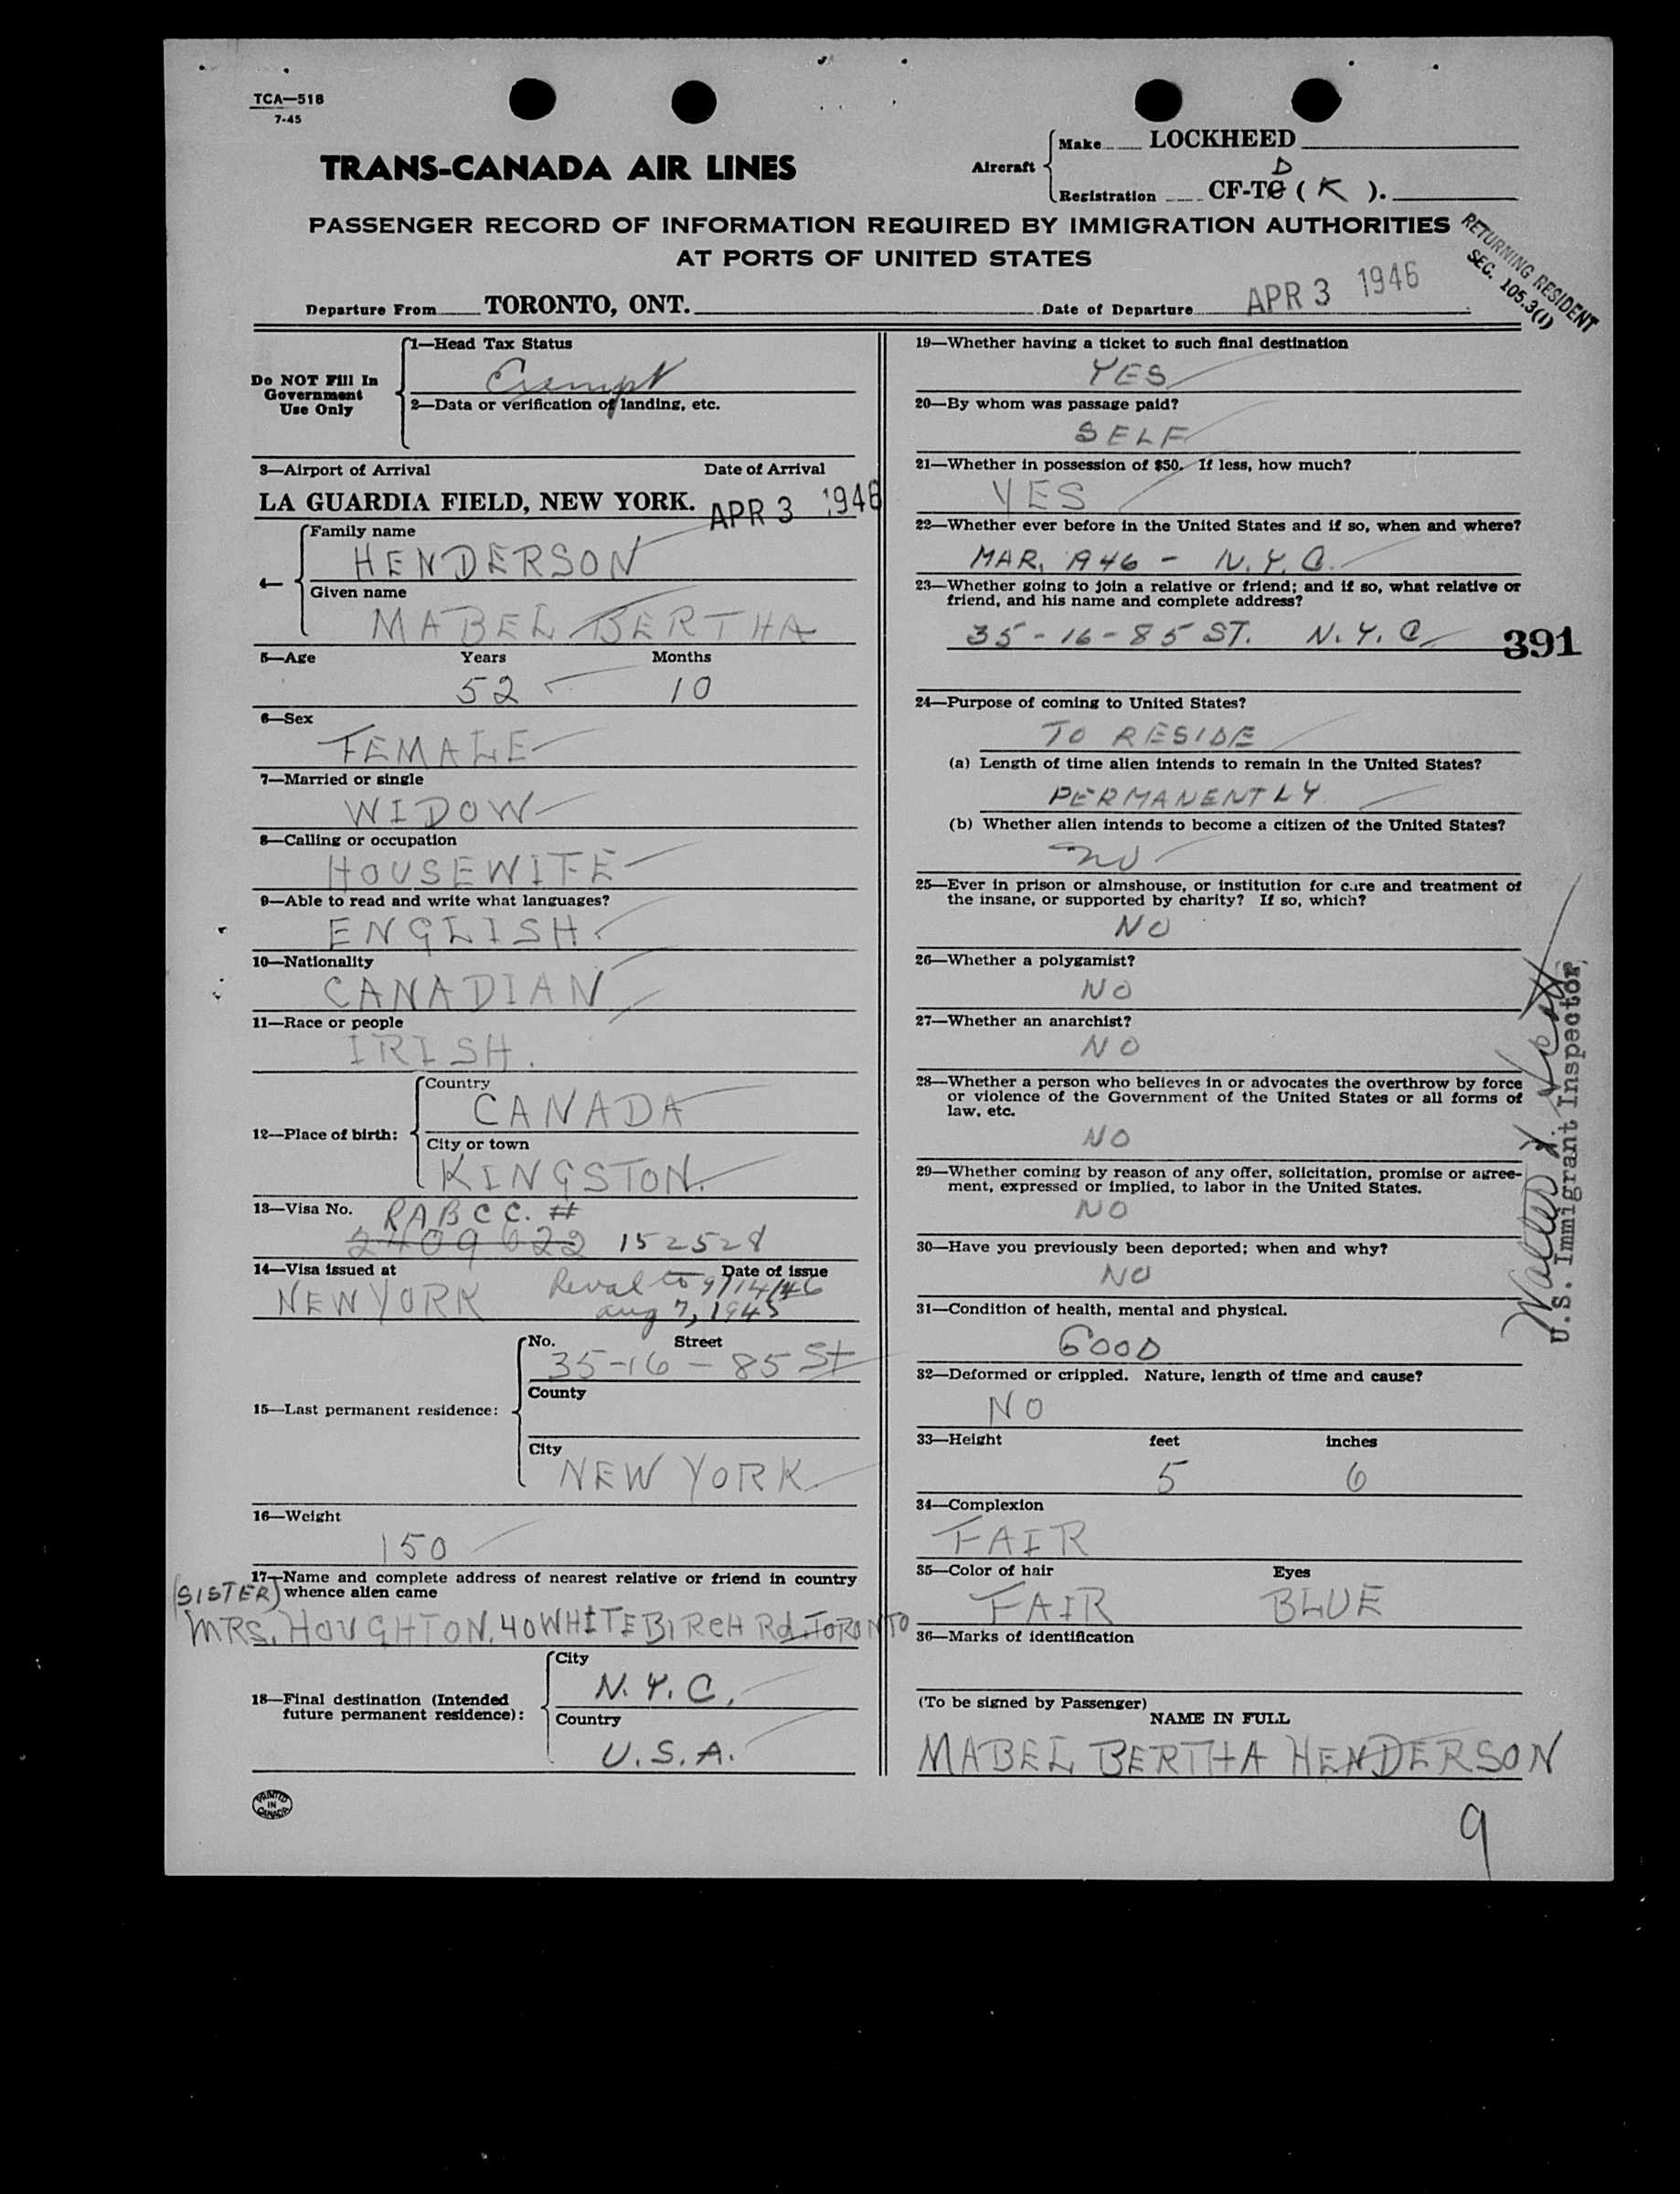 TCA—518
7-45
TRANS-CANADA AIR LINES
Aircraft
Make LOCKHEED
Registration CF-TC D ( K ).
PASSENGER RECORD OF INFORMATION REQUIRED BY IMMIGRATION AUTHORITIES
AT PORTS OF UNITED STATES
RETURNING RESIDENT
SEC. 105.3(1)
Departure From TORONTO, ONT. Date of Departure APR 3 1946
Do NOT Fill In
Government
Use Only
1—Head Tax Status
Exempt
2—Data or verification of landing, etc.
3—Airport of Arrival Date of Arrival
LA GUARDIA FIELD, NEW YORK. APR 3 1946
4—
Family name
HENDERSON
Given name
MABEL BERTHA
5—Age Years Months
52 10
6—Sex
FEMALE
7—Married or single
WIDOW
8—Calling or occupation
HOUSEWIFE
9—Able to read and write what languages?
ENGLISH.
10—Nationality
CANADIAN
11—Race or people
IRISH.
12—Place of birth:
Country
CANADA
City or town
KINGSTON.
13—Visa No. RABCC. #
2409622 152528
14—Visa issued at Date of issue
NEW YORK Reval to 9/14/46
Aug 7, 1945
15—Last permanent residence:
No. Street
35-16 - 85 St
County
City
NEW YORK
16—Weight
150
17—Name and complete address of nearest relative or friend in country
(SISTER) whence alien came
MRS. HOUGHTON. 40 WHITE BIRCH Rd. TORONTO
18—Final destination (Intended
future permanent residence):
City
N.Y.C.
Country
U.S.A.
PRINTED
IN
CANADA
19—Whether having a ticket to such final destination
YES
20—By whom was passage paid?
SELF
21—Whether in possession of $50. If less, how much?
YES
22—Whether ever before in the United States and if so, when and where?
MAR. 1946 - N.Y.C.
23—Whether going to join a relative or friend; and if so, what relative or
friend, and his name and complete address?
35-16-85 ST. N.Y.C.
391
24—Purpose of coming to United States?
TO RESIDE
(a) Length of time alien intends to remain in the United States?
PERMANENTLY
(b) Whether alien intends to become a citizen of the United States?
no
25—Ever in prison or almshouse, or institution for care and treatment of
the insane, or supported by charity? If so, which?
NO
26—Whether a polygamist?
NO
27—Whether an anarchist?
NO
28—Whether a person who believes in or advocates the overthrow by force
or violence of the Government of the United States or all forms of
law, etc.
NO
29—Whether coming by reason of any offer, solicitation, promise or agree-
ment, expressed or implied, to labor in the United States.
NO
30—Have you previously been deported; when and why?
NO
31—Condition of health, mental and physical.
GOOD
32—Deformed or crippled. Nature, length of time and cause?
NO
33—Height feet inches
5 6
34—Complexion
FAIR
35—Color of hair Eyes
FAIR BLUE
36—Marks of identification
(To be signed by Passenger)
NAME IN FULL
MABEL BERTHA HENDERSON
9
Walter
U.S. Immigrant Inspector